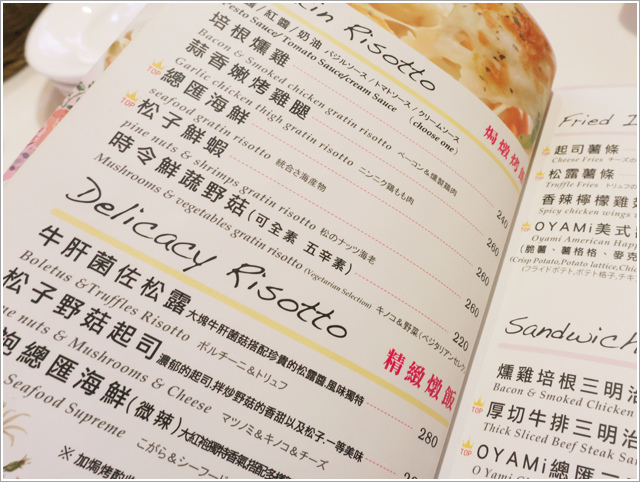 in Risotto
焗燉烤飯
醬/紅醬/奶油 バジルソース/トマトソース/クリームソース
Pesto Sauce/Tomato Sauce/cream Sauce (choose one)
培根燻雞 240
Bacon & Smoked chicken gratin risotto ベーコン&燻製鶏肉
蒜香嫩烤雞腿 260
Garlic chicken thigh gratin risotto ニンニク鶏もも肉
TOP 總匯海鮮 260
seafood gratin risotto 統合さ海産物
TOP 松子鮮蝦 260
pine nuts & shrimps gratin risotto 松のナッツ海老
時令鮮蔬野菇(可全素 五辛素) 220
Mushrooms & vegetables gratin risotto (Vegetarian Selection) キノコ&野菜(ベジタリアンセレク
Delicacy Risotto
精緻燉飯
牛肝菌佐松露 大塊牛肝菌菇搭配珍貴的松露醬,風味獨特 280
Boletus &Truffles Risotto ポルチーニ&トリュフ
松子野菇起司 濃郁的起司,拌炒野菇的香甜以及松子,一等美味
nuts & Mushrooms & Cheese マツノミ&キノコ&チーズ
袍總匯海鮮(微辣)
Seafood Supreme こがら&シーフード
※加焗烤酌
Fried
TOP 起司薯條
Cheese Fries チーズ
TOP 松露薯條
Truffle Fries トリュフ
香辣檸檬雞
Spicy chicken wings
TOP OYAMi美式
Oyami American
(脆薯、薯格格、麥克
(Crisp Potato,Potato lattice,
(フライドポテト,ポテト格子,チキ
Sandwich
燻雞培根三明治
Bacon & Smoked Chicken
TOP 厚切牛排三明治
Thick Sliced Beef Steak
TOP OYAMi總匯